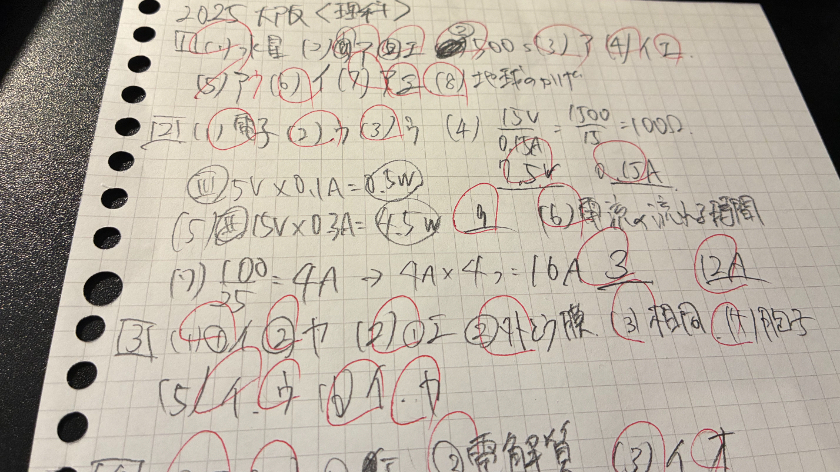 2025 大阪<理科>
[1](1)水星 (2)①ア②エ ③500s(3)ア(4)イエ
(5)アウ(6)イ(7)アエ(8)地球の
[2](1)電子(2)ウ(3)ウ (4) 15V/0.15A = 1500/15 = 100Ω
7.5V 0.15A
(Ⅲ)5V×0.1A=0.5W
(5)(Ⅱ)15V×0.3A=4.5W 9 (6)電流の流れる時間
(7) 100/25 = 4A → 4A×4つ=16A 3 12A
[3](1)①イ②ヤ (2)①エ②外とう膜(3)相同(4)胞子
(5)イ.ウ (6)イ.カ
②電解質 (3)イオ